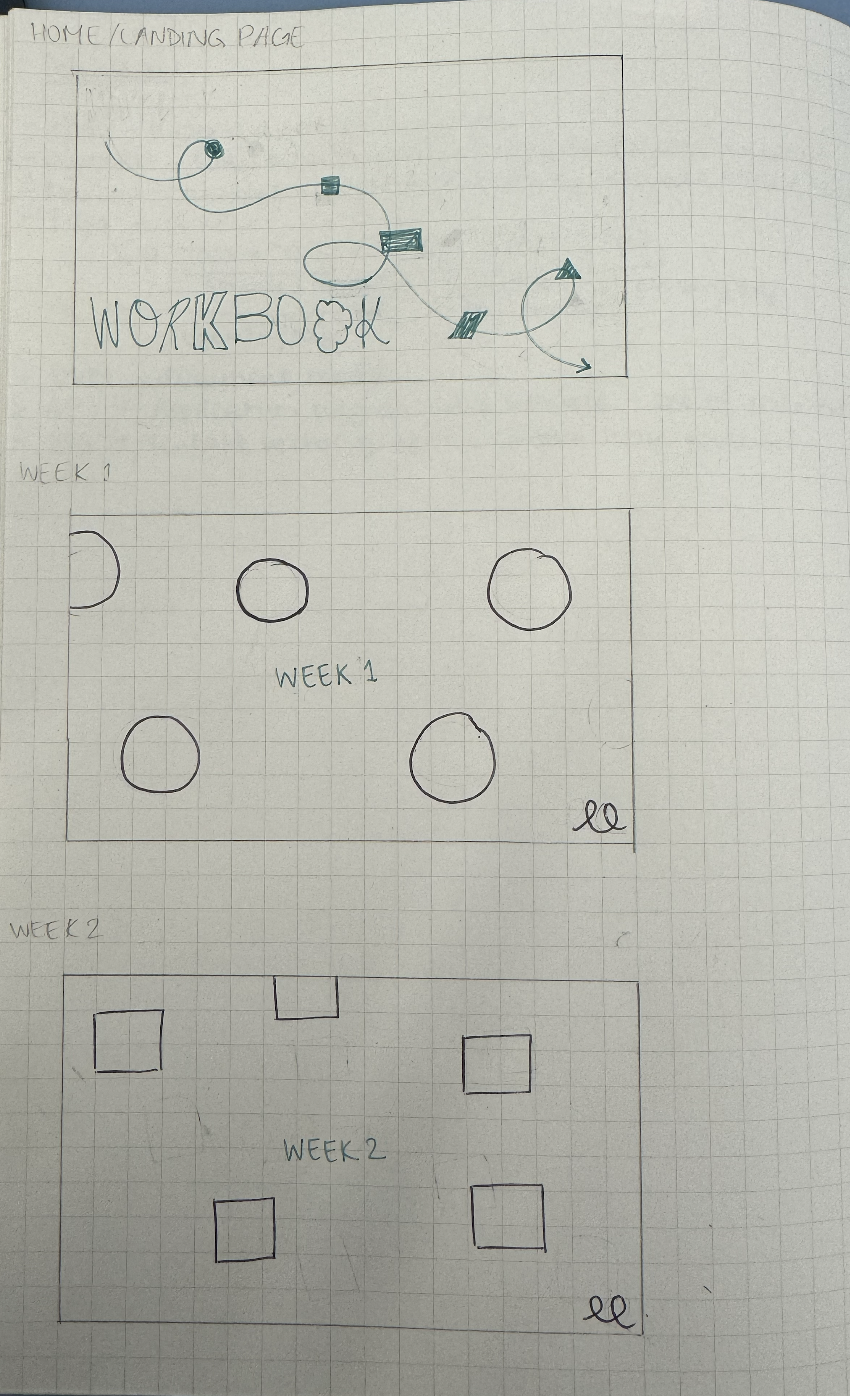 HOME/LANDING PAGE
WORKBOOK
WEEK 1
WEEK 1
WEEK 2
WEEK 2